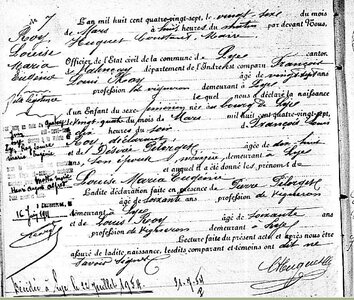 N° 7
Roy
Louise
Maria
Eugénie
L'an mil huit cent quatre-vingt-sept, le vingt-six du mois
de Mars à huit heures du matin par devant Nous,
Huguet Constant, Maire
Officier de l'Etat civil de la commune de Lye, canton
de Valençay département de l'Indre est comparu François
Louis Roy âgé de vingt sept ans
profession de vigneron demeurant à Lye
lequel nous a déclaré la naissance
d'un Enfant du sexe féminin, née au bourg de Lye
le vingt-quatre du mois de Mars mil huit cent quatre-vingt-sept,
à heures du soir de François Louis
Roy, déclarant
et de Désirée Pelorget âgée de
ans, son épouse, ménagère, demeurant à Lye
et auquel il a été donné les prénoms de
Louise Maria Eugénie
Ladite déclaration faite en présence de Pierre Pelorget
âgé de soixante ans profession de vigneron
demeurant à Lye
et de Louis Roy âgé de soixante ans
profession de vigneron demeurant à Lye
Lecture faite du présent acte et après nous être
assuré de ladite naissance, lesdits comparant et témoins ont dit ne
savoir signer
CHuguet
Décédée à Lye le 22 juillet 1954